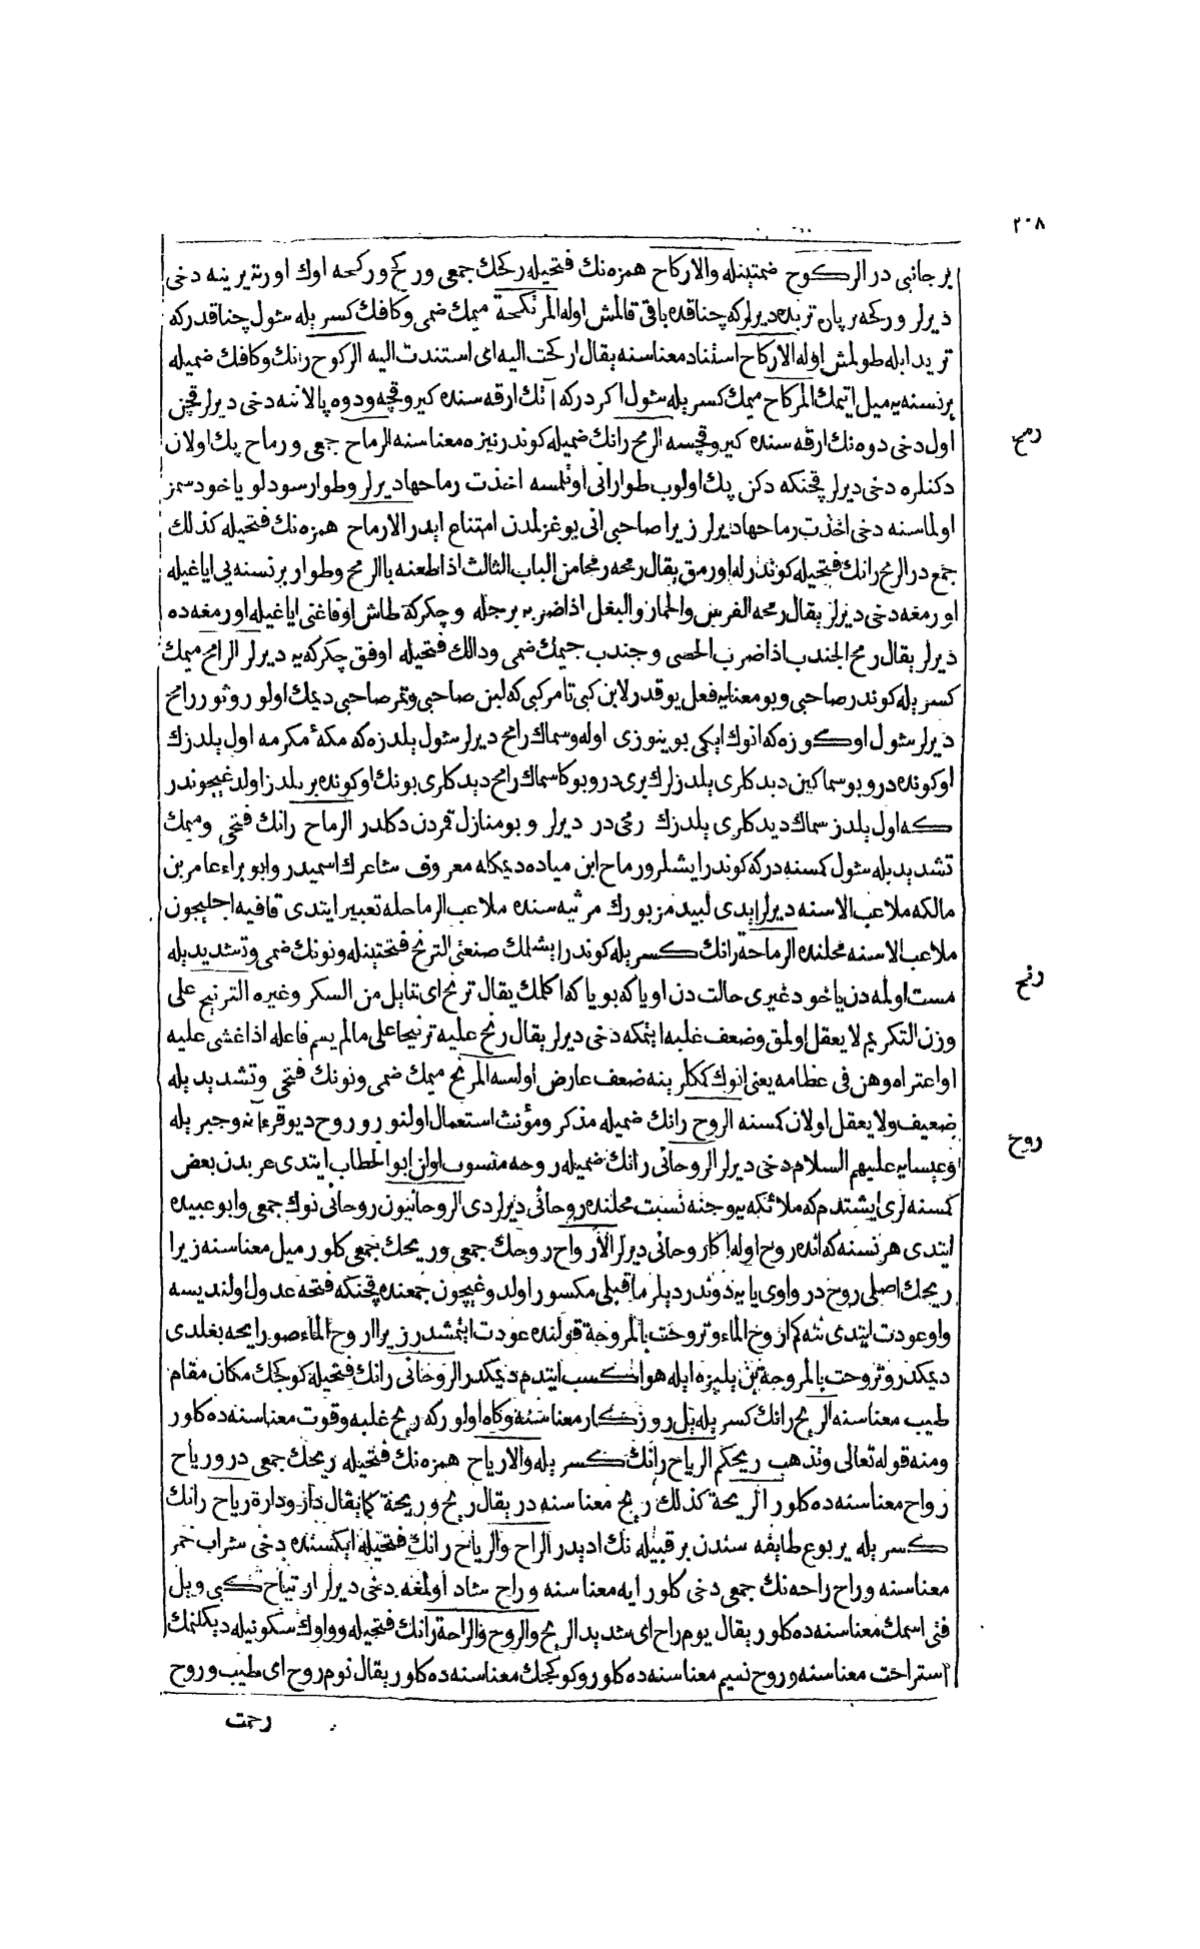 ٢٠٨
ير جانبى در الركوح ضمتينله والاركاح همزه نك فتحيله ركحك جمعى وركح وركحه اوك اورته يرينه دخى
ديرلر وركحه بر پاره تريده ديرلر كه چناقده باقى قالمش اوله المرتكحة ميمك ضمى وكافك كسر يله شول چناقدر كه
تريد ايله طولمش اوله الاركاح استناد معناسنه يقال اركحت اليه اى استندت اليه الركوح رانك وكافك ضميله
بر نسنه يه ميل ايتمك المركاح ميمك كسر يله شول اكردر كه آتك ارقه سنده كيرو قچه و دوه پالاننه دخى ديرلر قچن
اول دخى دوه نك ارقه سنده كيرو قچسه الرمح رانك ضميله كوندر نيزه معناسنه الرماح جمعى و رماح پك اولان
رمح
دكنلره دخى ديرلر قچنكه دكن پك اولوب طوارانى اوتلمسه اخذت رماحها ديرلر وطوار سودلو ياخود سمز
اولماسنه دخى اخذت رماحها ديرلر زيرا صاحبى انى بوغزلمدن امتناع ايدر الارماح همزه نك فتحيله كذلك
جمع در الرمح رانك فتحيله كوندرله اورمق يقال رمحه رمحا من الباب الثالث اذا طعنه بالرمح وطوار بر نسنه يى اياغيله
اورمغه دخى ديرلر يقال رمحه الفرس والحمار والبغل اذا ضربه برجله و چكركة طاش اوفاغنى اياغيله اورمغه ده
ديرلر يقال رمح الجندب اذا ضرب الحصى و جندب جيمك ضمى ودالك فتحيله اوفق چكركه يه ديرلر الرامح ميمك
كسر يله كوندر صاحبى وبو معنايه فعل يوقدر لابن كبى تامر كبى كه لبن صاحبى وتمر صاحبى ديمك اولور وثور رامح
ديرلر شول اوكوزه كه انوك ايكى بوينوزى اوله وسماك رامح ديرلر شول يلدزه كه مكۀ مكرمه اول يلدزك
اوكونده در و بو سماكين ديدكلرى يلدزلرك برى در و بوكا سماك رامح ديدكلرى بونك اوكونده بر يلدز اولدغيچوندر
كه اول يلدز سماك ديدكلرى يلدزك رمحى در ديرلر و بو منازل قمردن دكلدر الرماح رانك فتحى وميمك
تشديد يله شول كمسنه در كه كوندر ايشلر ورماح ابن مياده ديمكله معروف شاعرك اسميدر وابو براء عامر بن
مالكه ملاعب الاسنه ديرلر ايدى لبيد مزبورك مرثيه سنده ملاعب الرماحله تعبير ايتدى قافيه اجليچون
ملاعب الاسنه محلنده الرماحة رانك كسر يله كوندر ايشلمك صنعتى الترنح فتحتينله ونونك ضمى وتشديد يله
رنح
مست اولمه دن ياخود غيرى حالت دن اويا كه بويا كه اكلمك يقال ترنح اى تمايل من السكر وغيره الترنيح على
وزن التكريم لا يعقل اولمق وضعف غلبه ايتمكه دخى ديرلر يقال رنح عليه ترنيحا على مالم يسم فاعله اذا غشى عليه
او اعتراه وهن فى عظامه يعنى انوك كمكلر ينه ضعف عارض اولسه المرنح ميمك ضمى ونونك فتحى وتشديد يله
ضعيف ولا يعقل اولان كمسنه الروح رانك ضميله مذكر ومؤنث استعمال اولنور و روح ديو قرءانه وجبر يله
روح
وعيسايه عليهم السلام دخى ديرلر الروحانى رانك ضميله روحه منسوب اولن ابو الخطاب ايتدى عربدن بعض
كمسنه لرى ايشتدم كه ملائكه يه وجنه نسبت محلنده روحانى ديرلردى الروحانيون روحانى نوك جمعى وابو عبيده
ايتدى هر نسنه كه انده روح اوله اكا روحانى ديرلر الارواح روحك جمعى وريحك جمعى كلور ميل معناسنه زيرا
ريحك اصلى روح در واوى يايه دوندرديلر ماقبلى مكسور اولدوغيچون جمعنده قچنكه فتحه عدول اولنديسه
واو عودت ايتدى نته كم اروح الماء وتروحت بالمروحة قولنده عودت ايتمشدر زيرا اروح الماء صو رايحه بغلدى
ديمكدر و تروحت بالمروحة بن يلپزه ايله هوا كسب ايتدم ديمكدر الروحانى رانك فتحيله كوكجك مكان مقام
طيب معناسنه الريح رانك كسر يله يل روزكار معناسنه وكاه اولور كه ريح غلبه وقوت معناسنه ده كلور
ومنه قوله تعالى وتذهب ريحكم الرياح رانك كسر يله والارياح همزه نك فتحيله ريحك جمعى در ورياح
رواح معناسنه ده كلور الريحة كذلك ريح معناسنه در يقال ريح و ريحة كما يقال دار ودارة رياح رانك
كسر يله يربوع طايفه سندن بر قبيله نك اديدر الراح والرياح رانك فتحيله ايكسنده دخى شراب خمر
معناسنه وراح راحه نك جمعى دخى كلور ايه معناسنه و راح شاد اولمغه دخى ديرلر ارتياح كبى و يل
فتى اسمك معناسنه ده كلور يقال يوم راح اى شديد الريح والروح والراحة رانك فتحيله وواوك سكونيله ديكلنمك
استراحت معناسنه و روح نسيم معناسنه ده كلور وكوكجك معناسنه ده كلور يقال نوم روح اى طيب و روح
رحمت